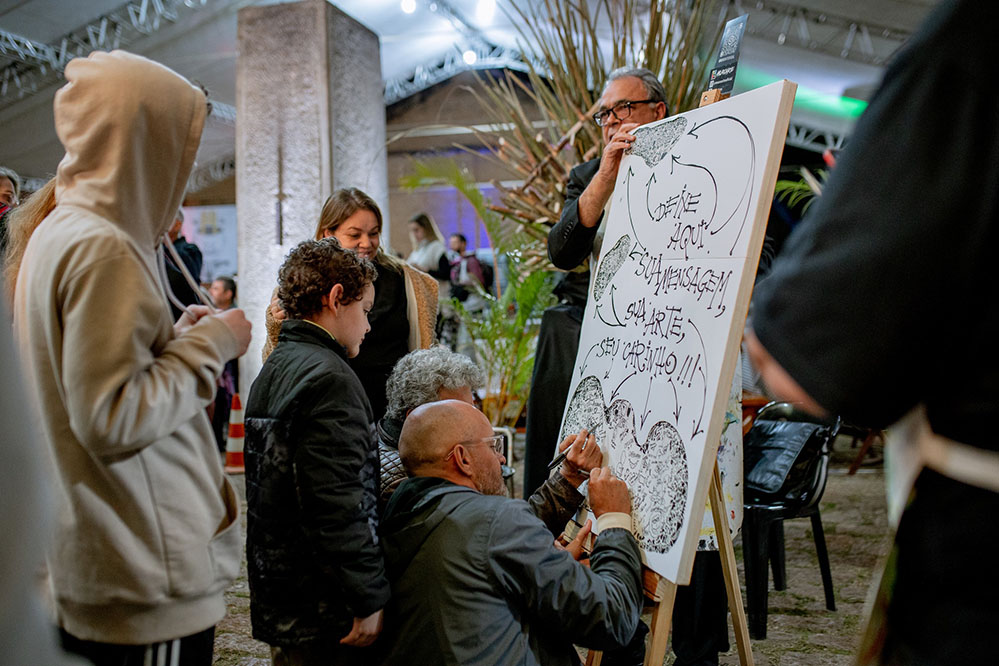 DEIXE
AQUI
SUA MENSAGEM,
SUA ARTE,
SEU CARINHO!!!